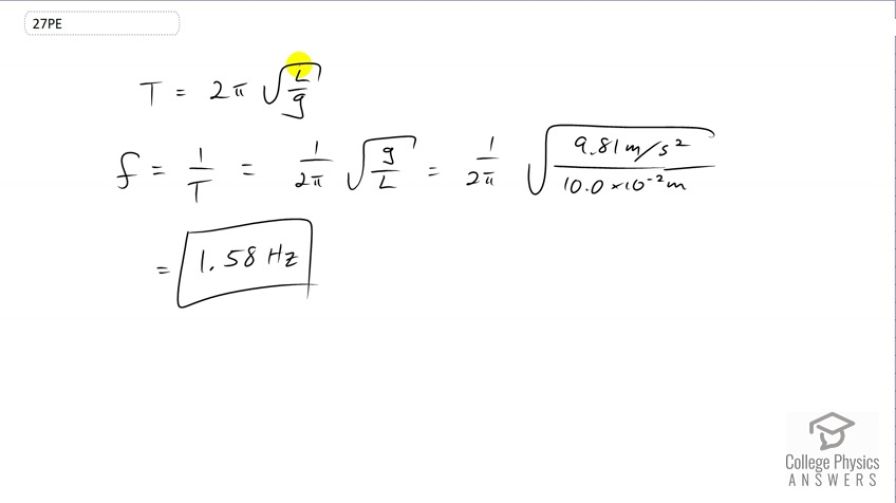 27PE
T = 2π √(L/g)
f = 1/T = 1/2π √(g/L) = 1/2π √(9.81 m/s² / 10.0 ×10⁻² m)
= 1.58 Hz
College Physics
ANSWERS